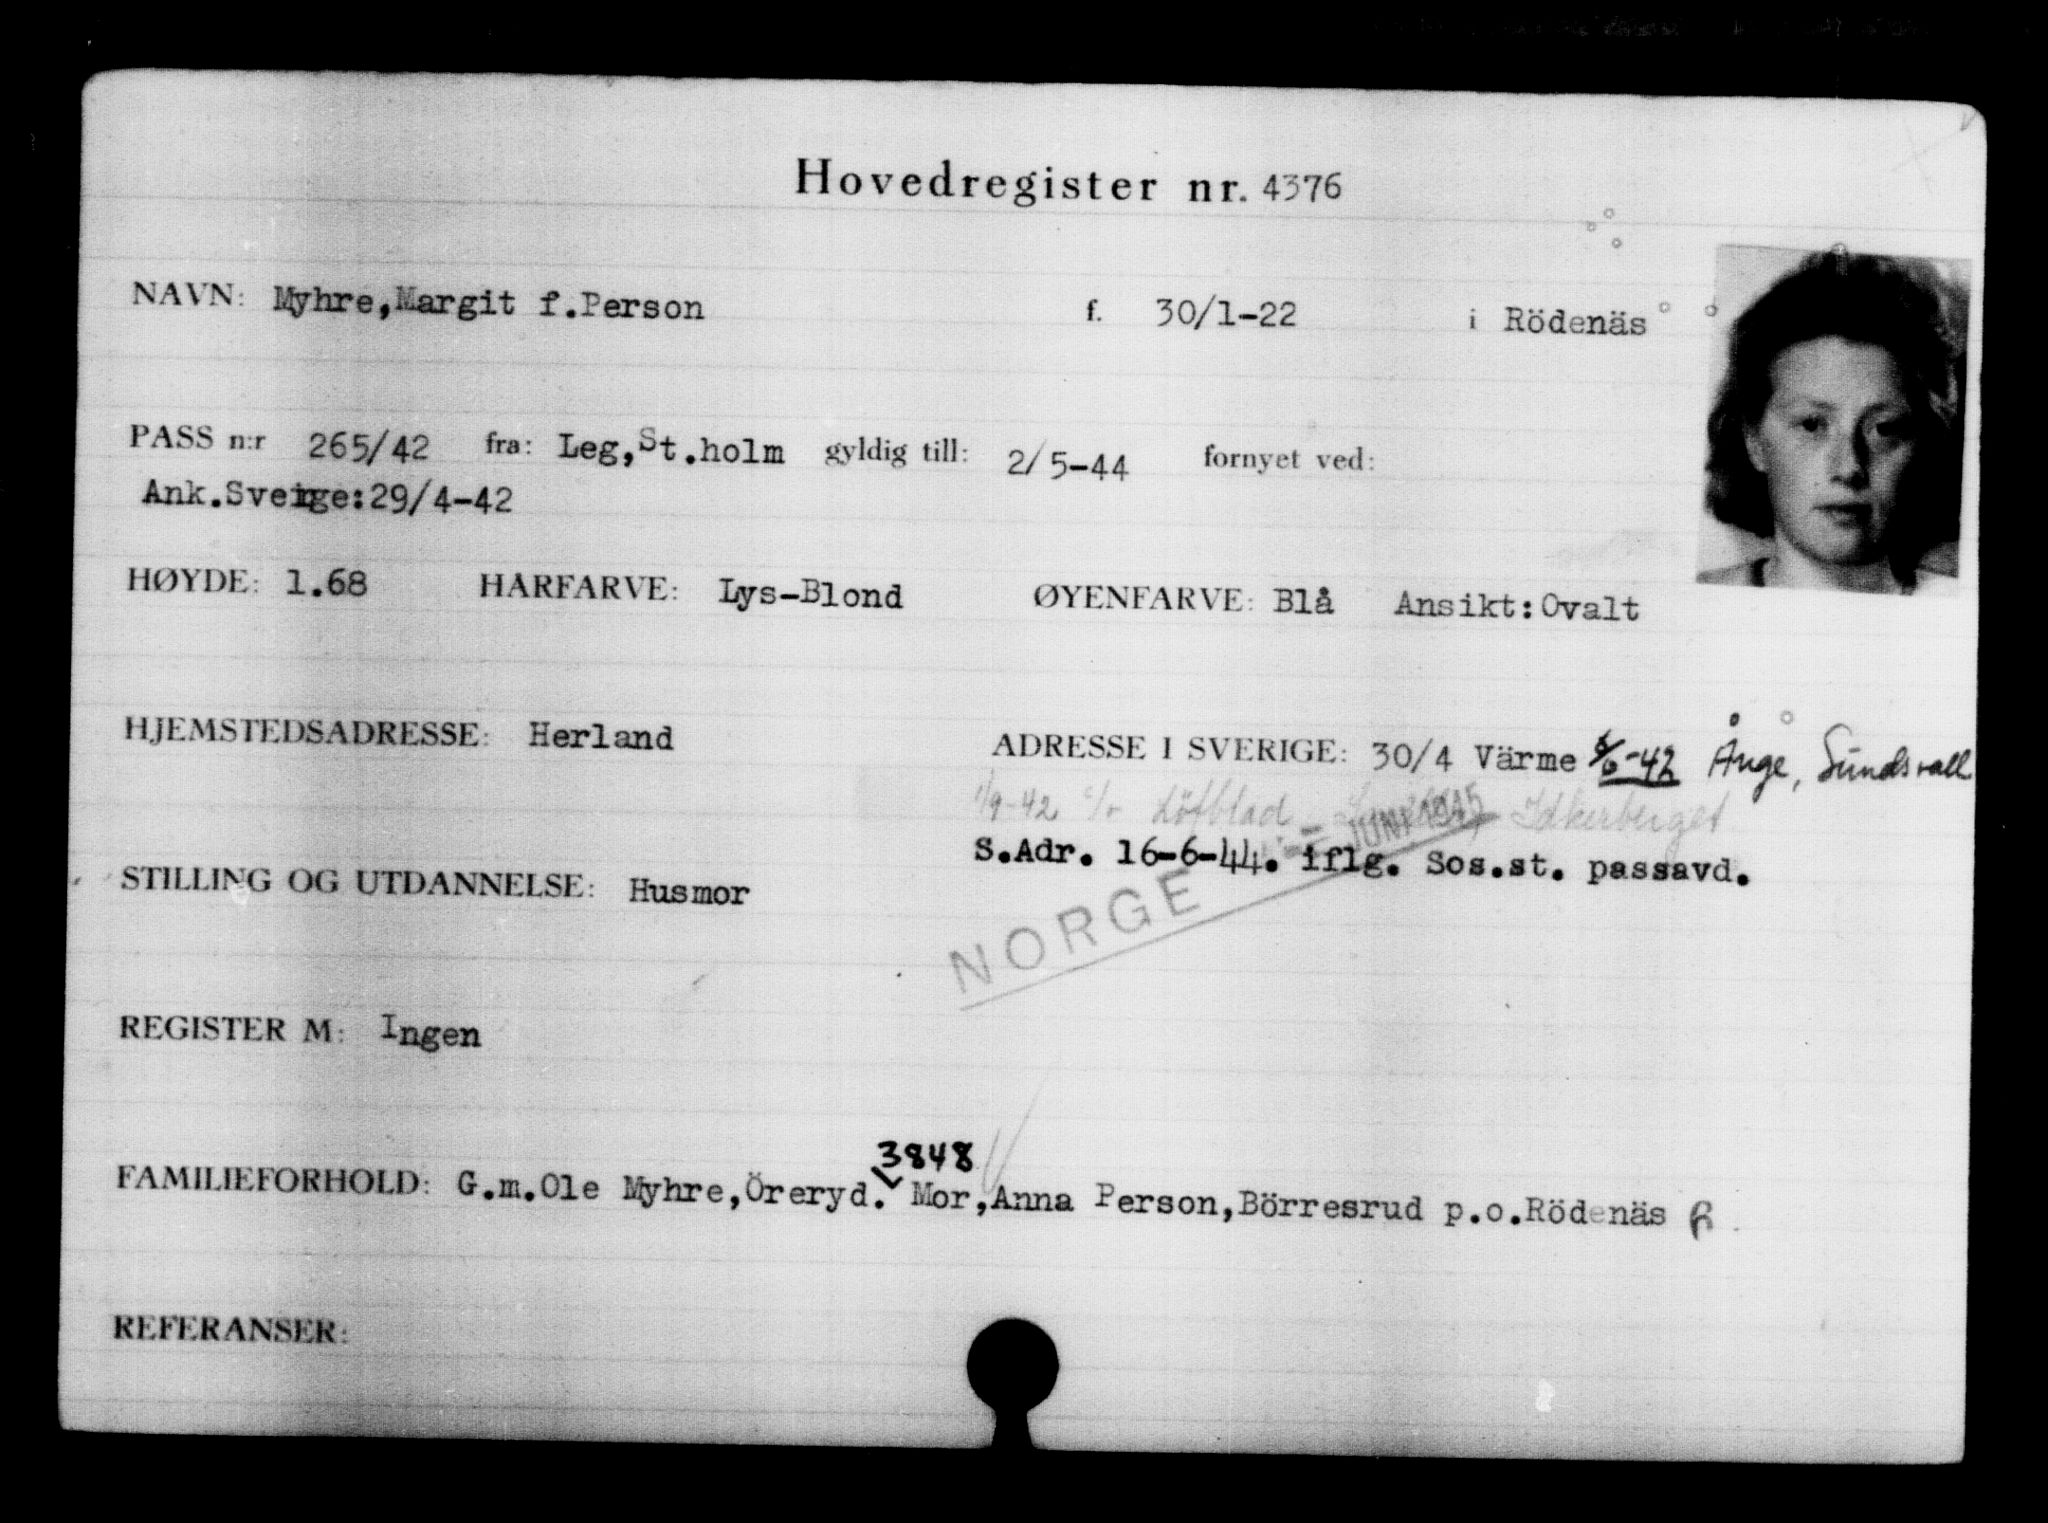 Hovedregister nr. 4376
NAVN: Myhre,Margit f.Person f. 30/1-22 i Rödenäs
PASS n:r 265/42 fra: Leg,St.holm gyldig till: 2/5-44 fornyet ved:
Ank.Sverige:29/4-42
HØYDE: 1.68 HÅRFARVE: Lys-Blond ØYENFARVE: Blå Ansikt:Ovalt
HJEMSTEDSADRESSE: Herland ADRESSE I SVERIGE: 30/4 Värme -42 Ånge, Sundsvall
1/9-42 c/o Löfblad Idkerberget
JUNI 1945
S.Adr. 16-6-44. iflg. Sos.st. passavd.
STILLING OG UTDANNELSE: Husmor
NORGE
REGISTER M: Ingen
3848
FAMILIEFORHOLD: G.m.Ole Myhre,Öreryd. Mor,Anna Person,Börresrud p.o.Rödenäs
REFERANSER: